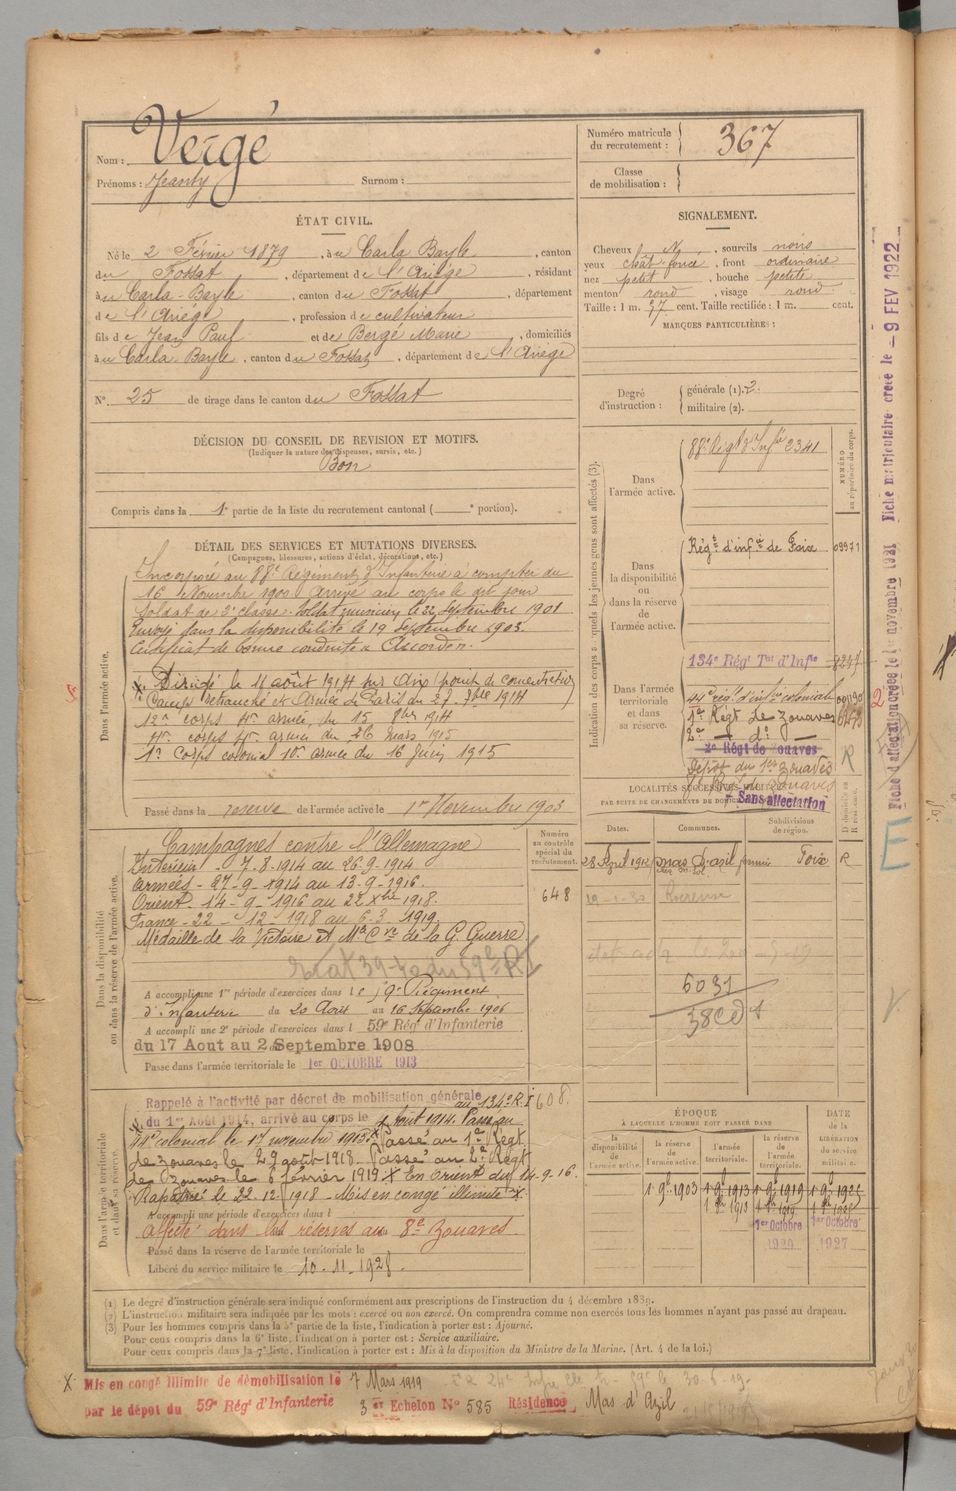 Nom : Vergé
Prénoms : Jeanty Surnom :
Numéro matricule du recrutement : 367
Classe de mobilisation :
ÉTAT CIVIL.
Né le 2 Février 1879, à u Carla Bayle, canton
du Fossat, département de l'Ariège, résidant
à u Carla-Bayle, canton du Fossat, département
de l'Ariège, profession de cultivateur
fils de Jean Paul et de Bergé Marie, domiciliés
à u Carla-Bayle, canton du Fossat, département de l'Ariège
N° 25 de tirage dans le canton du Fossat
SIGNALEMENT.
Cheveux N, sourcils noirs
yeux chat. foncé, front ordinaire
nez petit, bouche petite
menton rond, visage rond
Taille : 1 m. 57 cent. Taille rectifiée : 1 m. cent.
MARQUES PARTICULIÈRES :
Degré d'instruction : générale (1). 2.
militaire (2).
DÉCISION DU CONSEIL DE REVISION ET MOTIFS.
(Indiquer la nature des dispenses, sursis, etc.)
Bon
Compris dans la 1e partie de la liste du recrutement cantonal ( e portion).
DÉTAIL DES SERVICES ET MUTATIONS DIVERSES.
(Campagnes, blessures, actions d'éclat, décorations, etc.)
Dans l'armée active.
Incorporé au 88e Régiment d'Infanterie à compter du
16 Novembre 1900. Arrivé au corps le dit jour
Soldat de 2e classe. Soldat musicien le 22 Septembre 1901
Envoyé dans la disponibilité le 19 Septembre 1903.
Certificat de bonne conduite « Accordé ».
Dirigé le 11 août 1914 sur (point de concentration)
Camp retranché et Armée de Paris du 27. 7bre 1914
12e corps 4e armée, du 15 8bre 1914
4e corps 4e armée du 26 mars 1915
1er Corps colonial 10e armée du 16 Juin 1915
Passé dans la réserve de l'armée active le 1er Novembre 1903
Indication des corps auxquels les jeunes gens sont affectés (3).
NUMÉRO au répertoire du corps.
Dans l'armée active.
88e Régt d'Infie 2341
Dans la disponibilité ou dans la réserve de l'armée active.
Régt d'infie de Foix 03971
Dans l'armée territoriale et dans sa réserve.
134e Régt Tal d'Infie
44e régt d'infie coloniale
1er Régt de Zouaves
2e — d° —
2e Régt de Zouaves
Dépôt du 1er Zouaves R
Sans affectation
LOCALITÉS SUCCESSIVES
PAR SUITE DE CHANGEMENTS DE DOMICILE
Dates. Communes. Subdivisions de région. D domicile ou R résidence.
28 Avril 1912 Mas d'azil Foix R
6031
Dans la disponibilité ou dans la réserve de l'armée active.
Numéro au contrôle spécial du recrutement.
648
Campagnes contre l'Allemagne
Intérieur - 7.8.1914 au 26.9.1914
Armées - 27-9-1914 au 13-9-1916.
Orient. 14-9-1916 au 22 Xbre 1918.
France - 22 - 12 - 1918 au 6.3.1919
Médaille de la Victoire et Mle Cve de la G. Guerre
A accompli une 1e période d'exercices dans le 59e Régiment
d'Infanterie du 20 Août au 16 Septembre 1906
A accompli une 2e période d'exercices dans l 59e Rég d'Infanterie
du 17 Aout au 2 Septembre 1908
Passé dans l'armée territoriale le 1er OCTOBRE 1913
Dans l'armée territoriale et dans sa réserve.
Rappelé à l'activité par décret de mobilisation générale au 134e R.I 608.
du 1er Août 1914, arrivé au corps le 7 Août 1914. Passé au
44e colonial le 17 novembre 1915 X Passé au 1er Régt
de Zouaves le 29 août 1918. Passé au 2e Régt
des Zouaves le 6 février 1919 X En Orient du 14-9-16.
Rapatrié le 22-12-1918 - Mis en congé illimité X.
A accompli une période d'exercices dans l
Affecté dans les réserves au 8e Zouaves.
Passé dans la réserve de l'armée territoriale le
Libéré du service militaire le 10-11-1928.
ÉPOQUE À LAQUELLE L'HOMME DOIT PASSER DANS
la disponibilité de l'armée active. la réserve de l'armée active. l'armée territoriale. la réserve de l'armée territoriale. DATE de la LIBÉRATION du service militaire.
1-9bre-1903 1-9-1913 1-9-1919
1er Octobre 1er Octobre
1920 1927
(1) Le degré d'instruction générale sera indiqué conformément aux prescriptions de l'instruction du 4 décembre 1889.
(2) L'instruction militaire sera indiquée par les mots : exercé ou non exercé. On comprendra comme non exercés tous les hommes n'ayant pas passé au drapeau.
(3) Pour les hommes compris dans la 5e partie de la liste, l'indication à porter est : Ajourné.
Pour ceux compris dans la 6e liste, l'indication à porter est : Service auxiliaire.
Pour ceux compris dans la 7e liste, l'indication à porter est : Mis à la disposition du Ministre de la Marine. (Art. 4 de la loi.)
X Mis en congé illimité de démobilisation le 7 Mars 1919
par le dépôt du 59e Rég d'Infanterie 3 er Echelon N° 585 Résidence Mas d'Azil
Fiche d'affectation créée le 1er novembre 1921 Fiche matriculaire créée le - 9 FEV 1922